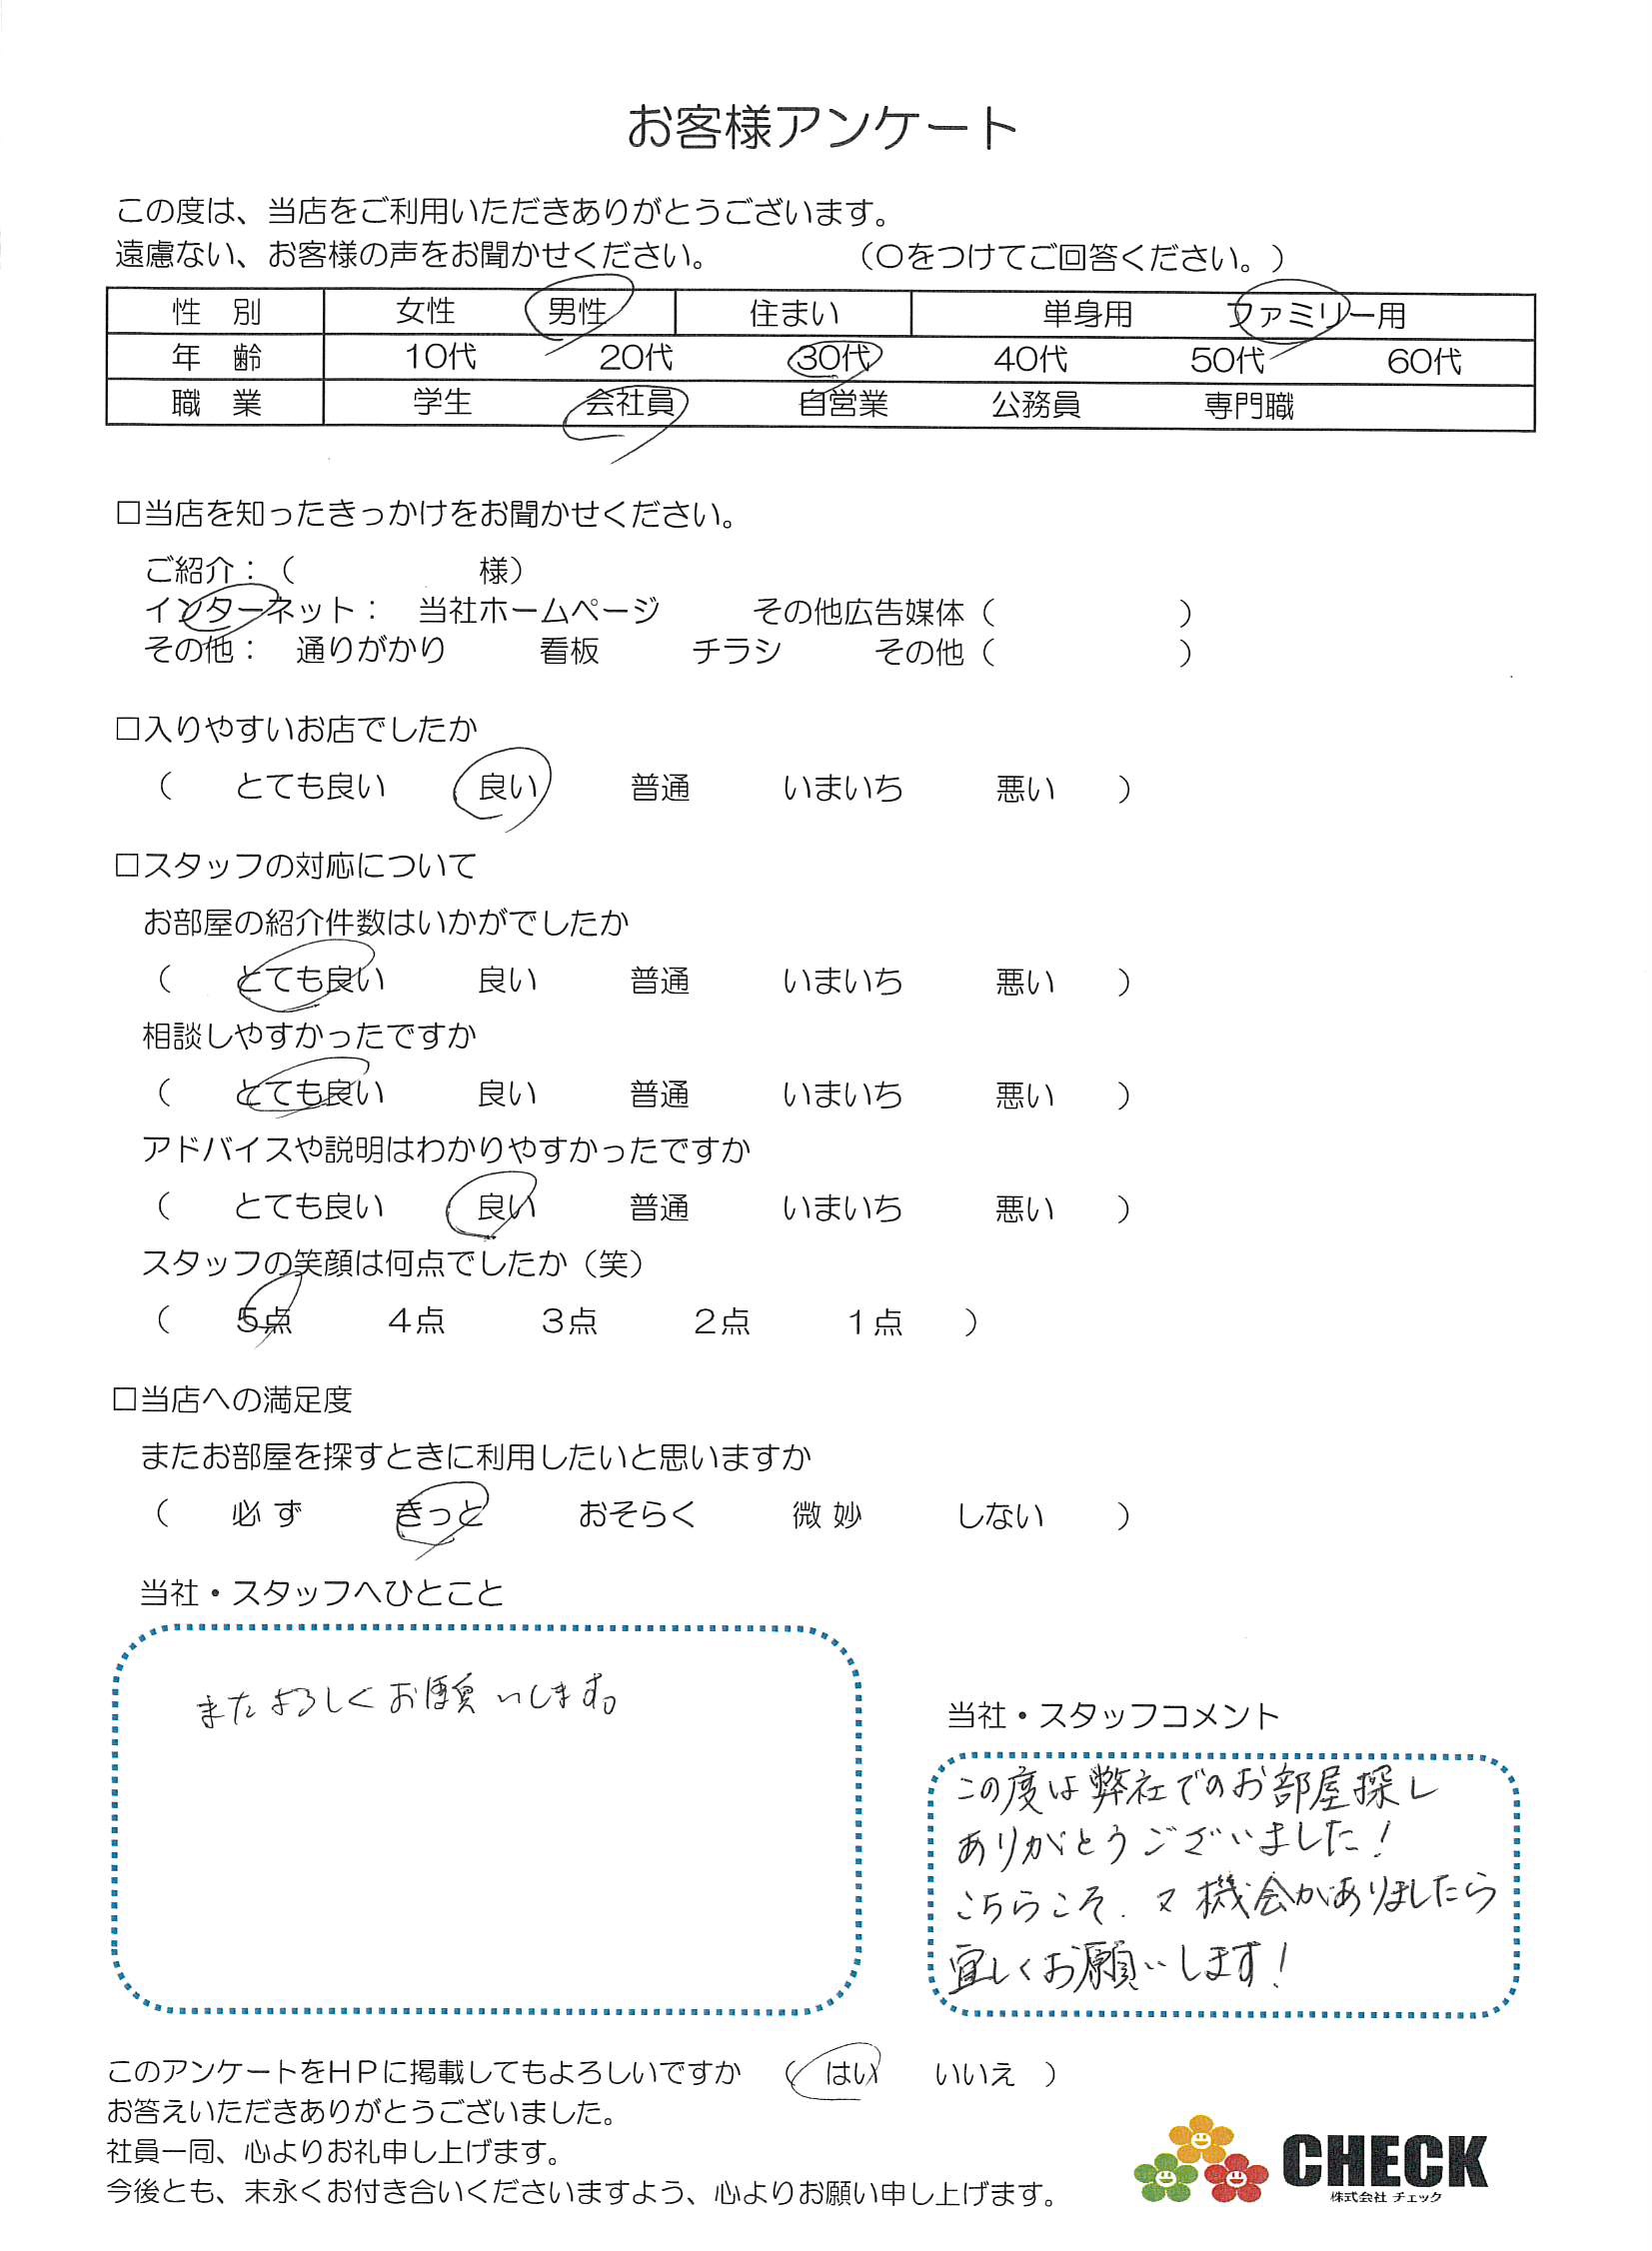 お客様アンケート
この度は、当店をご利用いただきありがとうございます。
遠慮ない、お客様の声をお聞かせください。 （○をつけてご回答ください。）
性 別 女性 男性 住まい 単身用 ファミリー用
年 齢 10代 20代 30代 40代 50代 60代
職 業 学生 会社員 自営業 公務員 専門職
□当店を知ったきっかけをお聞かせください。
ご紹介：（ 様）
インターネット： 当社ホームページ その他広告媒体（ ）
その他： 通りがかり 看板 チラシ その他（ ）
□入りやすいお店でしたか
（ とても良い 良い 普通 いまいち 悪い ）
□スタッフの対応について
お部屋の紹介件数はいかがでしたか
（ とても良い 良い 普通 いまいち 悪い ）
相談しやすかったですか
（ とても良い 良い 普通 いまいち 悪い ）
アドバイスや説明はわかりやすかったですか
（ とても良い 良い 普通 いまいち 悪い ）
スタッフの笑顔は何点でしたか（笑）
（ 5点 4点 3点 2点 1点 ）
□当店への満足度
またお部屋を探すときに利用したいと思いますか
（ 必ず きっと おそらく 微妙 しない ）
当社・スタッフへひとこと
またよろしくお願いします。
当社・スタッフコメント
この度は弊社でのお部屋探し
ありがとうございました！
こちらこそ、又機会がありましたら
宜しくお願いします！
このアンケートをＨＰに掲載してもよろしいですか （ はい いいえ ）
お答えいただきありがとうございました。
社員一同、心よりお礼申し上げます。
今後とも、末永くお付き合いくださいますよう、心よりお願い申し上げます。
CHECK
株式会社 チェック